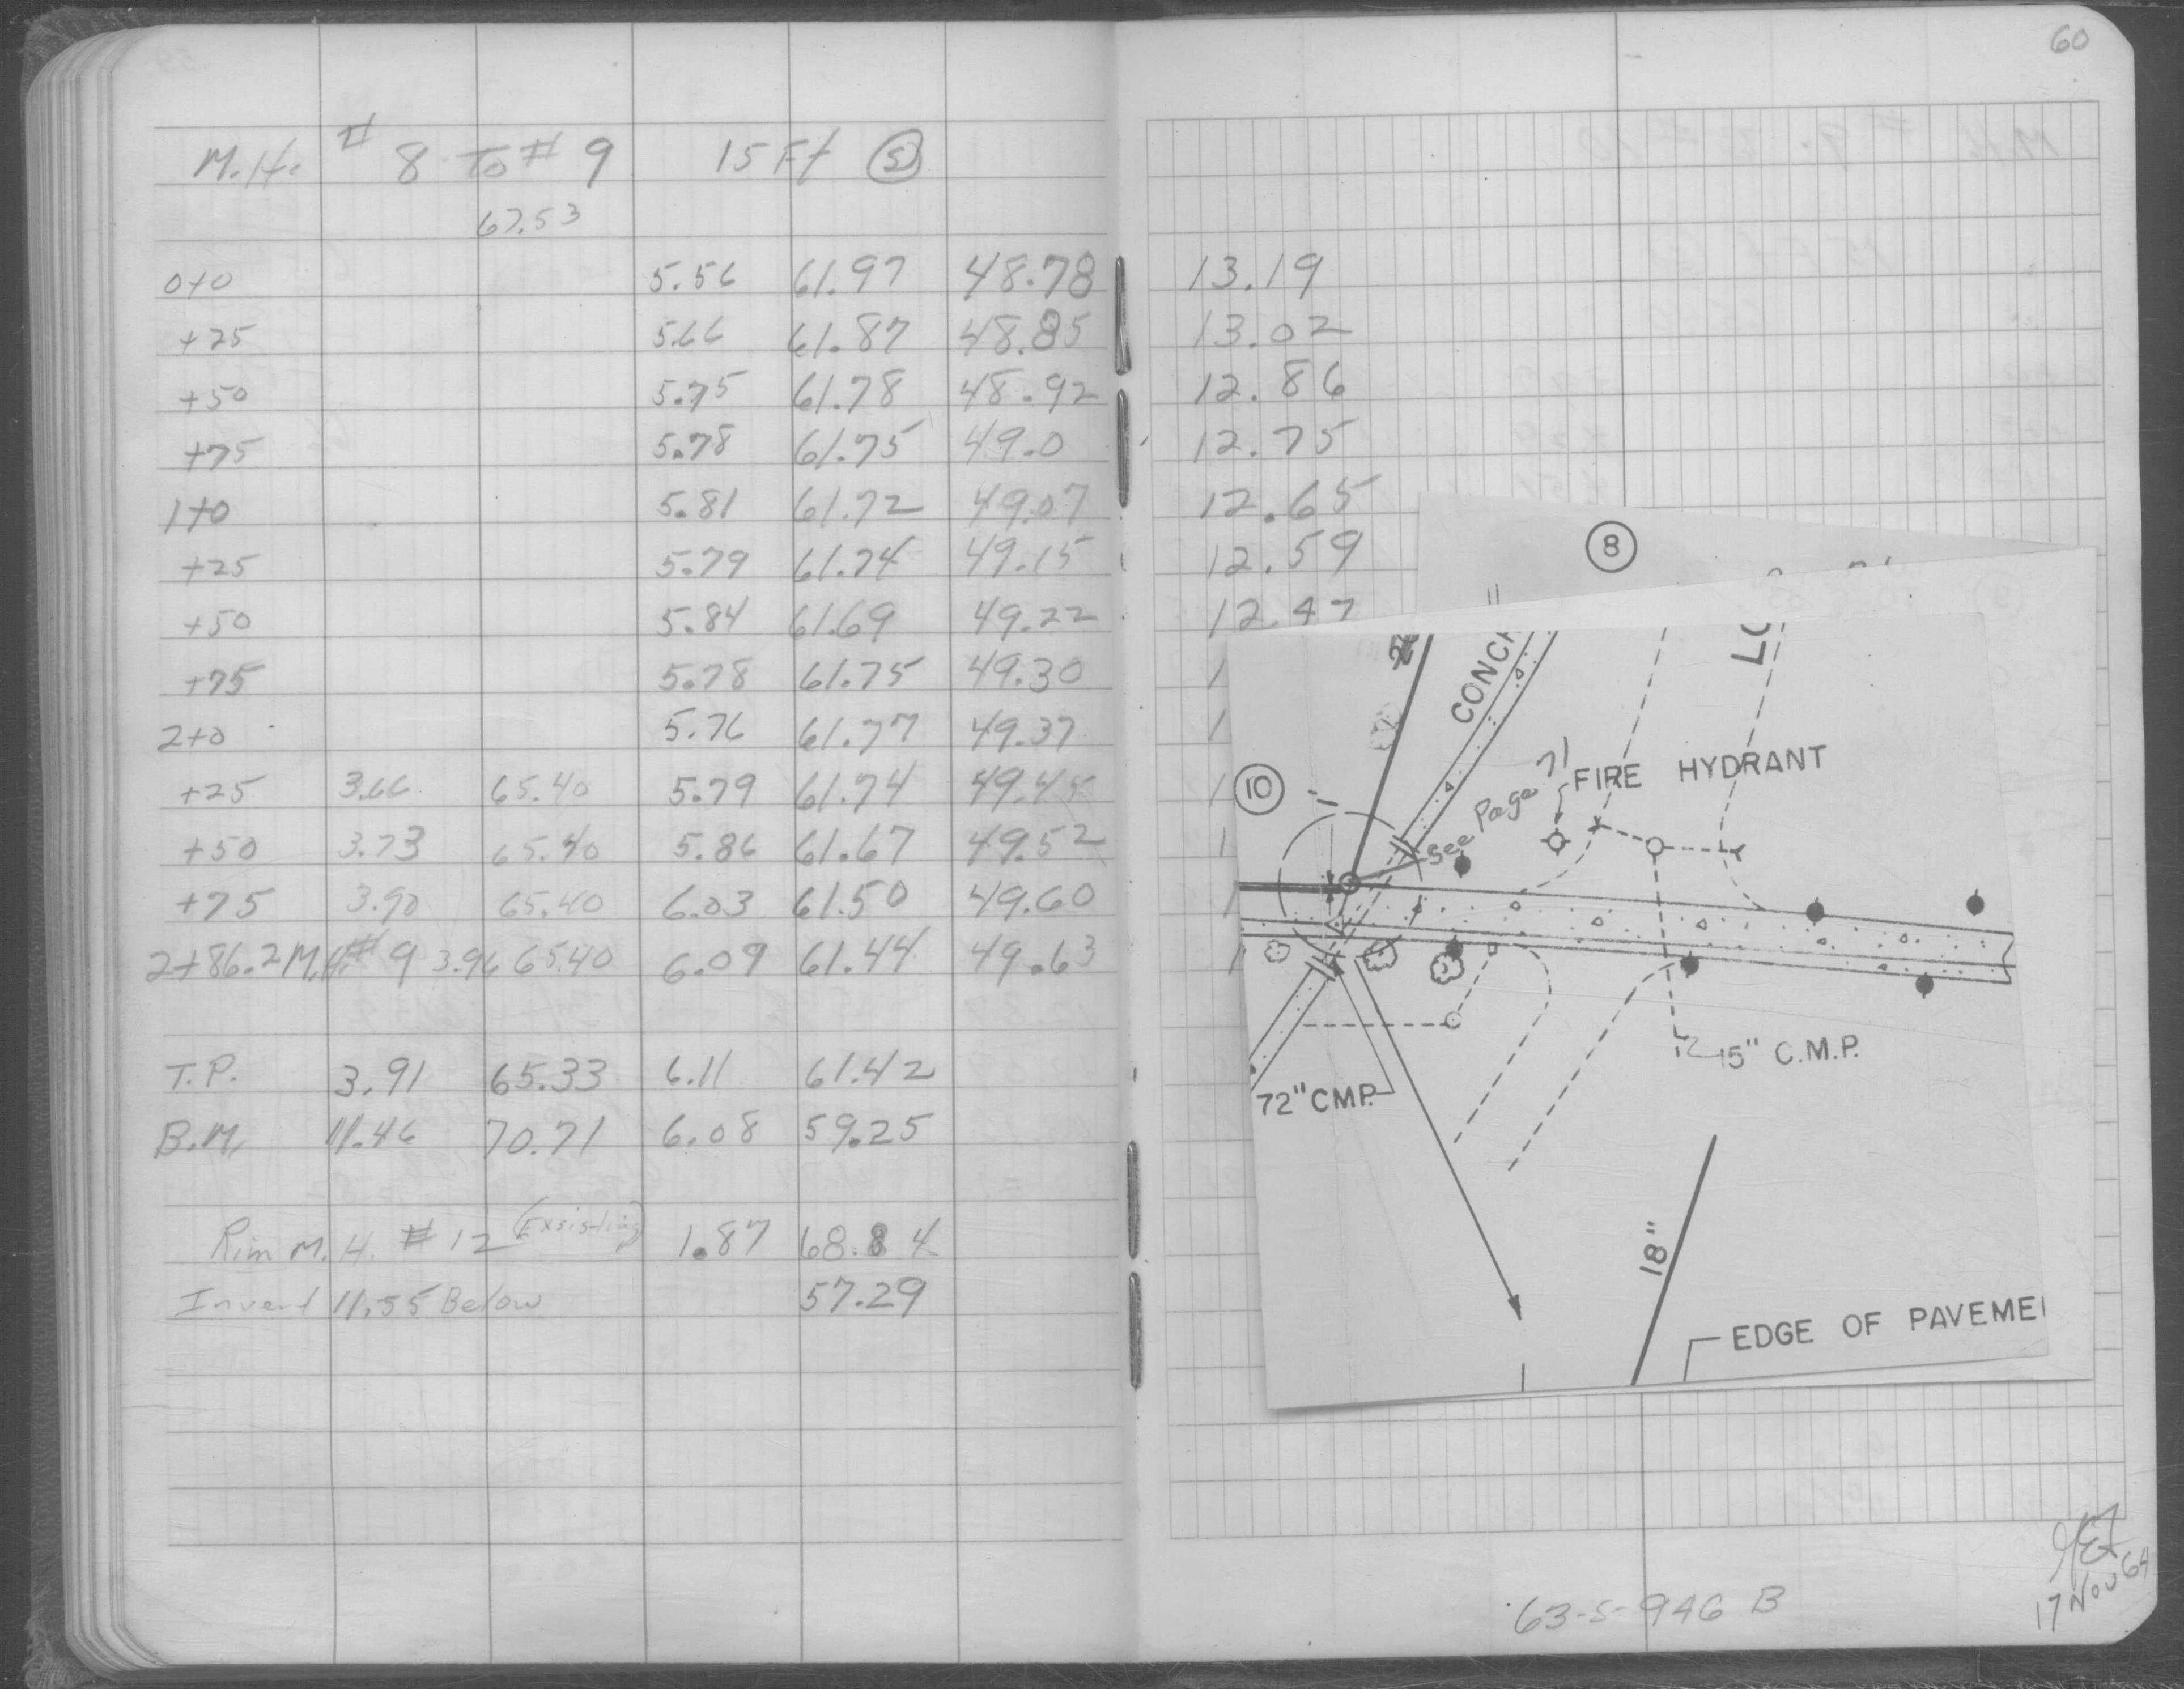 60
M.H. # 8 To # 9 15 Ft (S)
67.53
0+0 5.56 61.97 48.78 13.19
+25 5.66 61.87 48.85 13.02
+50 5.75 61.78 48.92 12.86
+75 5.78 61.75 49.0 12.75
1+0 5.81 61.72 49.07 12.65
+25 5.79 61.74 49.15 12.59
+50 5.84 61.69 49.22 12.47
+75 5.78 61.75 49.30 1
2+0 5.76 61.77 49.37 1
+25 3.66 65.40 5.79 61.74 49.45 1
+50 3.73 65.40 5.86 61.67 49.52 1
+75 3.90 65.40 6.03 61.50 49.60 1
2+86.2 M.H. # 9 3.96 65.40 6.09 61.44 49.63 1
T.P. 3.91 65.33 6.11 61.42
B.M. 11.46 70.71 6.08 59.25
Rim M.H. # 12 (Exsisting) 1.87 68.84
Invert 11.55 Below 57.29
8
CONCR
LO
10
See Page 71
FIRE HYDRANT
15" C.M.P.
72" CMP.
18"
EDGE OF PAVEME
63-S-946 B
17 Nov 64